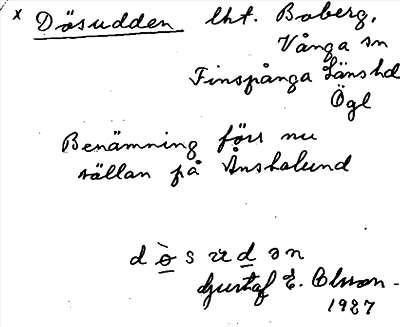 x Dösudden lht. Boberg,
Vånga sn
Finspånga Länshd
Ögl
Benämning förr nu
sällan på Anshalund
d ò s ud ə n
Gustaf E. Olsson -
1927